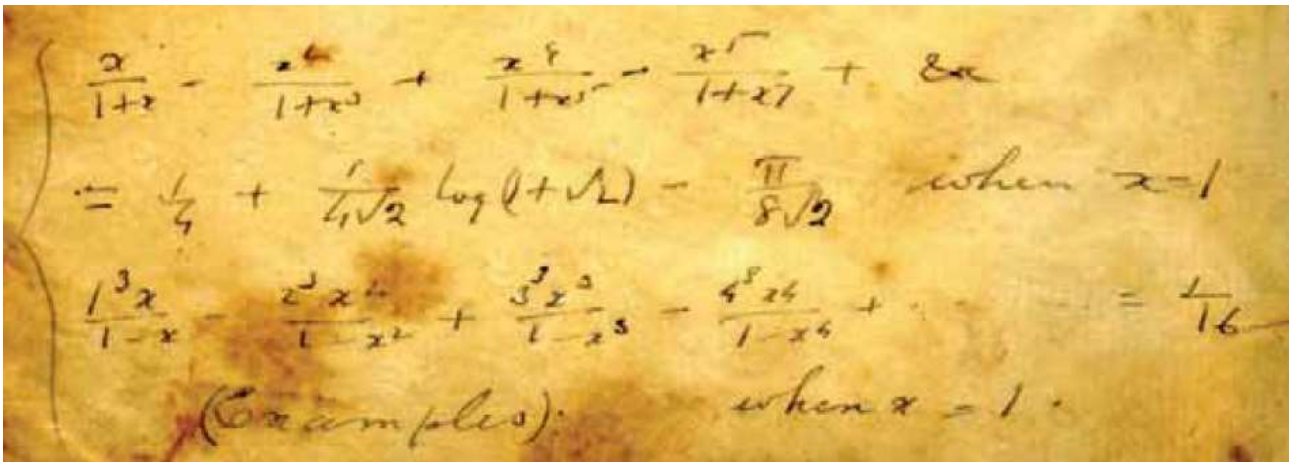 x/(1+x) - x^4/(1+x^3) + x^8/(1+x^5) - x^5/(1+x^7) + &c
= 1/4 + 1/(4√2) log(1+√2) - π/(8√2) when x=1
1^3x/(1-x) - 2^3x^2/(1-x^2) + 3^3x^3/(1-x^3) - 4^3x^4/(1-x^4) + . . . = 1/16
(Examples). when x = 1.